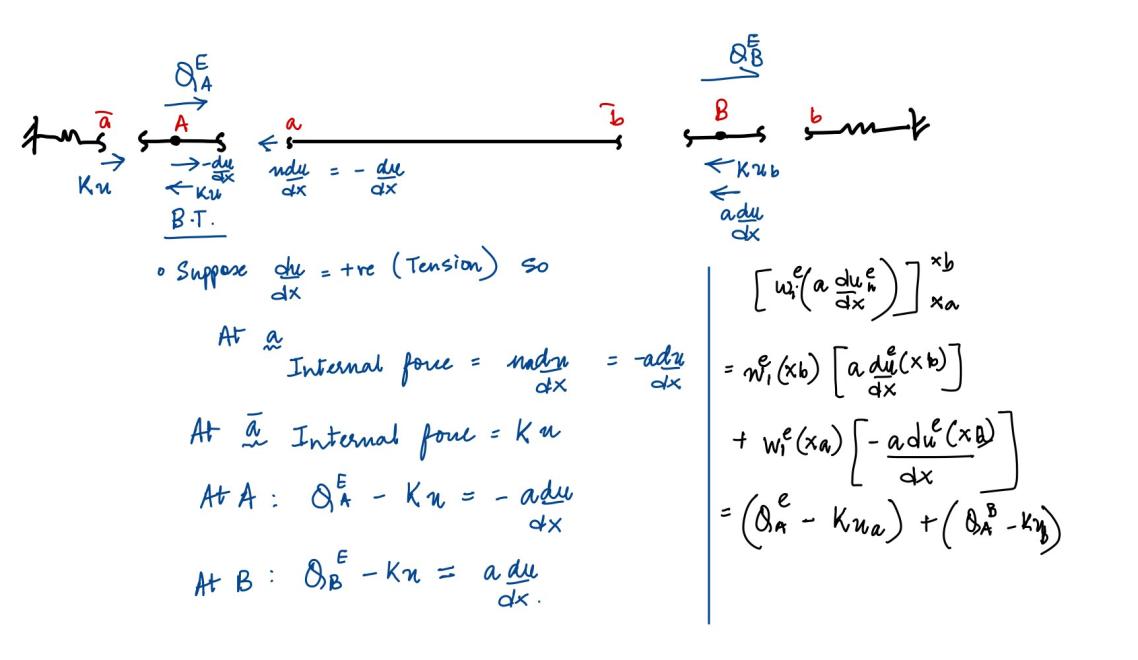 Q_A^E
Q_B^E
ā
A
a
b̄
B
b
Ku
-du/dx
Ku
n du/dx = - du/dx
Kub
a du/dx
B.T.
• Suppose du/dx = +ve (Tension) so
At a
Internal force = nadu/dx = -adu/dx
At ā Internal force = Ku
At A : Q_A^E - Ku = - adu/dx
At B : Q_B^E - Ku = a du/dx.
[w_i^e(a du_n^e/dx)]_xa^xb
= w_i^e(xb) [a du^e/dx(xb)]
+ w_i^e(xa) [- adu^e(xa)/dx]
= (Q_A^e - Ku_a) + (Q_A^B - Ku_b)